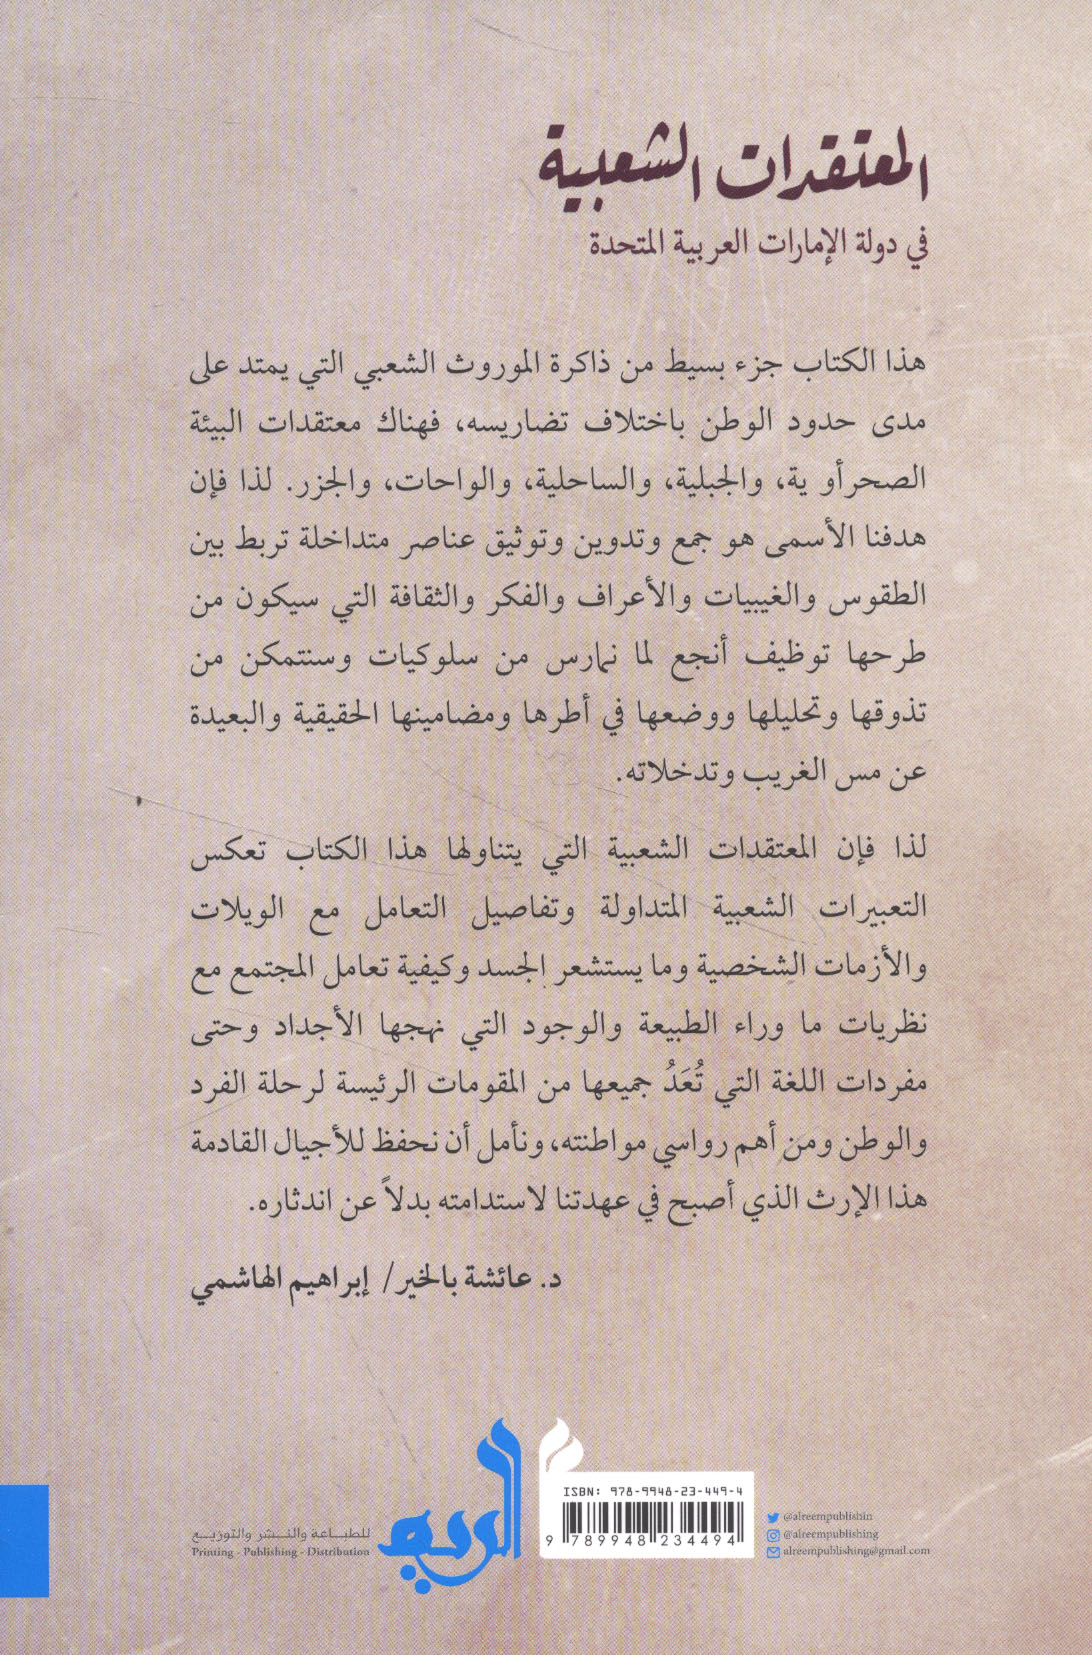 المعتقدات الشعبية
في دولة الإمارات العربية المتحدة
هذا الكتاب جزء بسيط من ذاكرة الموروث الشعبي التي يمتد على
مدى حدود الوطن باختلاف تضاريسه، فهناك معتقدات البيئة
الصحرأو ية، والجبلية، والساحلية، والواحات، والجزر. لذا فإن
هدفنا الأسمى هو جمع وتدوين وتوثيق عناصر متداخلة تربط بين
الطقوس والغيبيات والأعراف والفكر والثقافة التي سيكون من
طرحها توظيف أنجع لما نمارس من سلوكيات وسنتمكن من
تذوقها وتحليلها ووضعها في أطرها ومضامينها الحقيقية والبعيدة
عن مس الغريب وتدخلاته.
لذا فإن المعتقدات الشعبية التي يتناولها هذا الكتاب تعكس
التعبيرات الشعبية المتداولة وتفاصيل التعامل مع الويلات
والأزمات الشخصية وما يستشعر الجسد وكيفية تعامل المجتمع مع
نظريات ما وراء الطبيعة والوجود التي نهجها الأجداد وحتى
مفردات اللغة التي تُعَدُ جميعها من المقومات الرئيسة لرحلة الفرد
والوطن ومن أهم رواسي مواطنته، ونأمل أن نحفظ للأجيال القادمة
هذا الإرث الذي أصبح في عهدتنا لاستدامته بدلاً عن اندثاره.
د. عائشة بالخير/ إبراهيم الهاشمي
الريم
للطباعة والنشر والتوزيع
Printing - Publishing - Distribution
ISBN: 978-9948-23-449-4
9 789948 234494
@alreempublishin
@alreempublishing
alreempublishing@gmail.com